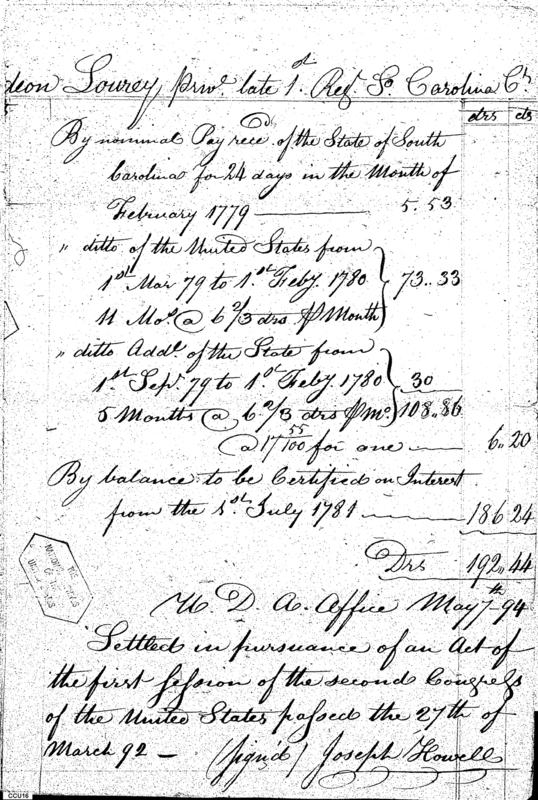 deon Lowrey, priv.e late 1.st Reg.t So Carolina C.ts
drs cts
By nominal Pay rec.d of the State of South
Carolina for 24 days in the Month of
February 1779 — 5.53
" ditto of the United States from
1.st Mar 79 to 1.st Feby. 1780 } 73..33
11 Mo.s @ 6 2/3 drs ⅌ Month
" ditto Add.l of the State from
1.st Sep.r 79 to 1.st Feby. 1780 } 30
5 Months @ 6 2/3 drs ⅌ mo. 108..86
@ 17 55/100 for one — 6..20
By balance to be Certified on Interest
from the 1.st July 1781 — 186 24
Drs 192..44
Office May 7th 94
Settled in pursuance of an Act of
the first Session of the second Congress
of the United States passed the 27th of
March 92 — (sign'd) Joseph Howell
THE
NATIONAL ARCHIVES
OF THE
UNITED STATES
CCU16